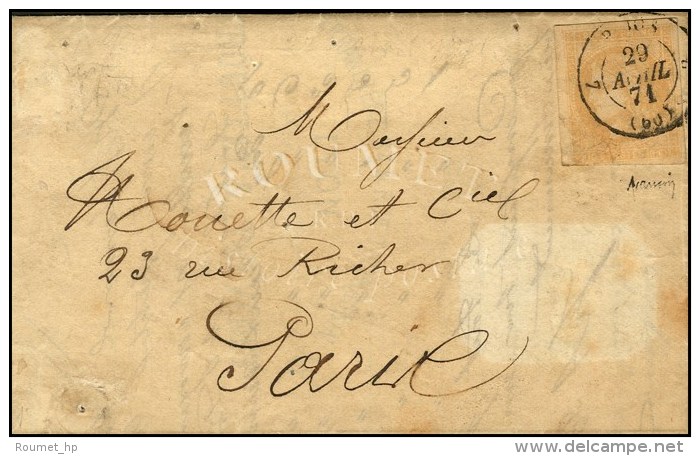 29
AVRIL
71
(60)
Monsieur
Houette et Cie
23 rue Richer
Paris
ROUMET
Roumet_hp
delcampe.net